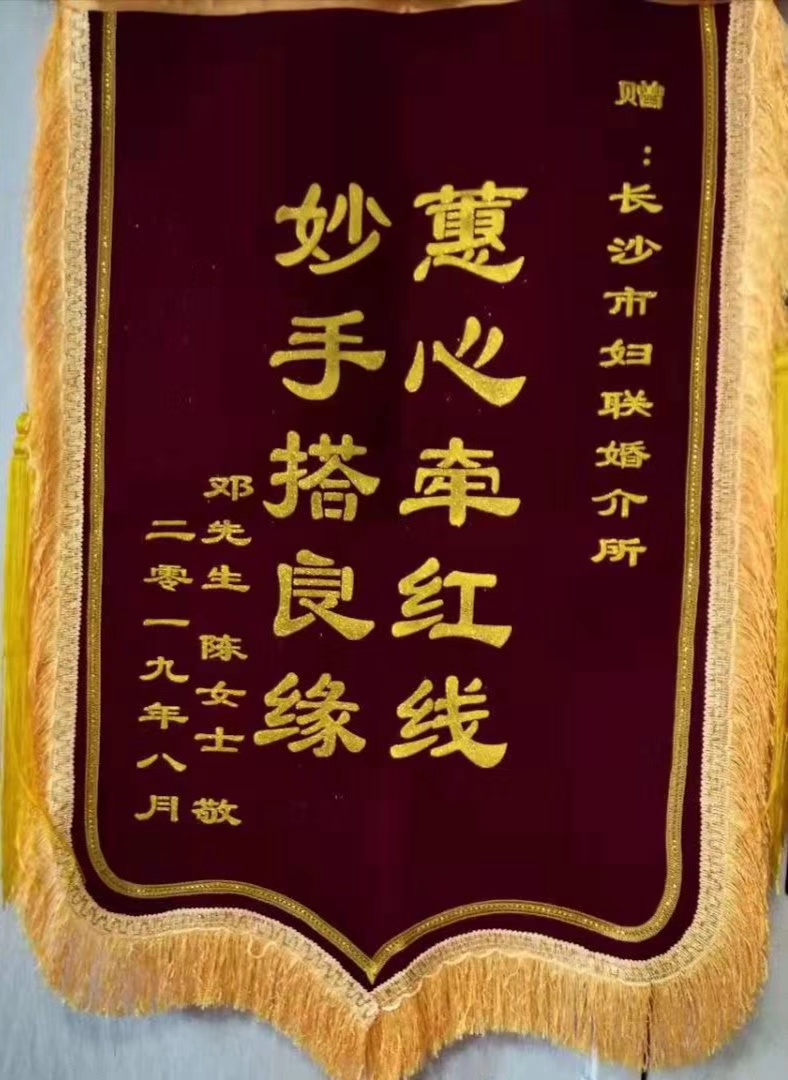 赠：长沙市妇联婚介所
蕙心牵红线
妙手搭良缘
邓先生 陈女士 敬
二零一九年八月